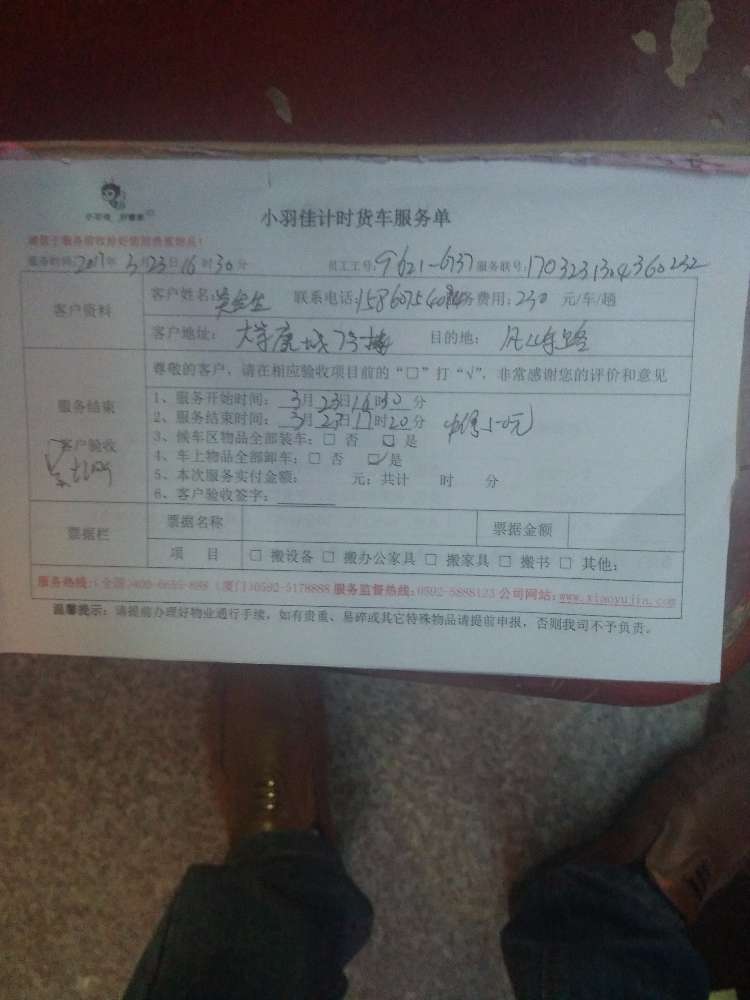 小羽佳计时货车服务单
服务时间:2017年 3月23日16时30分 员工工号:9621-6737 服务联号:1703231304360232
客户资料
客户姓名: 联系电话: 服务费用:230 元/车/趟
客户地址: 目的地:
尊敬的客户,请在相应验收项目前的“□”打“√”,非常感谢您的评价和意见
服务结束
客户验收
1、服务开始时间: 3月23日16时30分
2、服务结束时间: 3月23日17时20分
3、候车区物品全部装车:□ 否 □ 是
4、车上物品全部卸车:□ 否 ☑是
5、本次服务实付金额: 元;共计 时 分
6、客户验收签字:
票据栏
票据名称 票据金额
项 目 □ 搬设备 □ 搬办公家具 □ 搬家具 □ 搬书 □ 其他:
服务热线:(全国)400-6655-888 (厦门)0592-5178888 服务监督热线:0592-5888123 公司网站:www.xiaoyujia.com
温馨提示:请提前办理好物业通行手续,如有贵重、易碎或其它特殊物品请提前申报,否则我司不予负责。